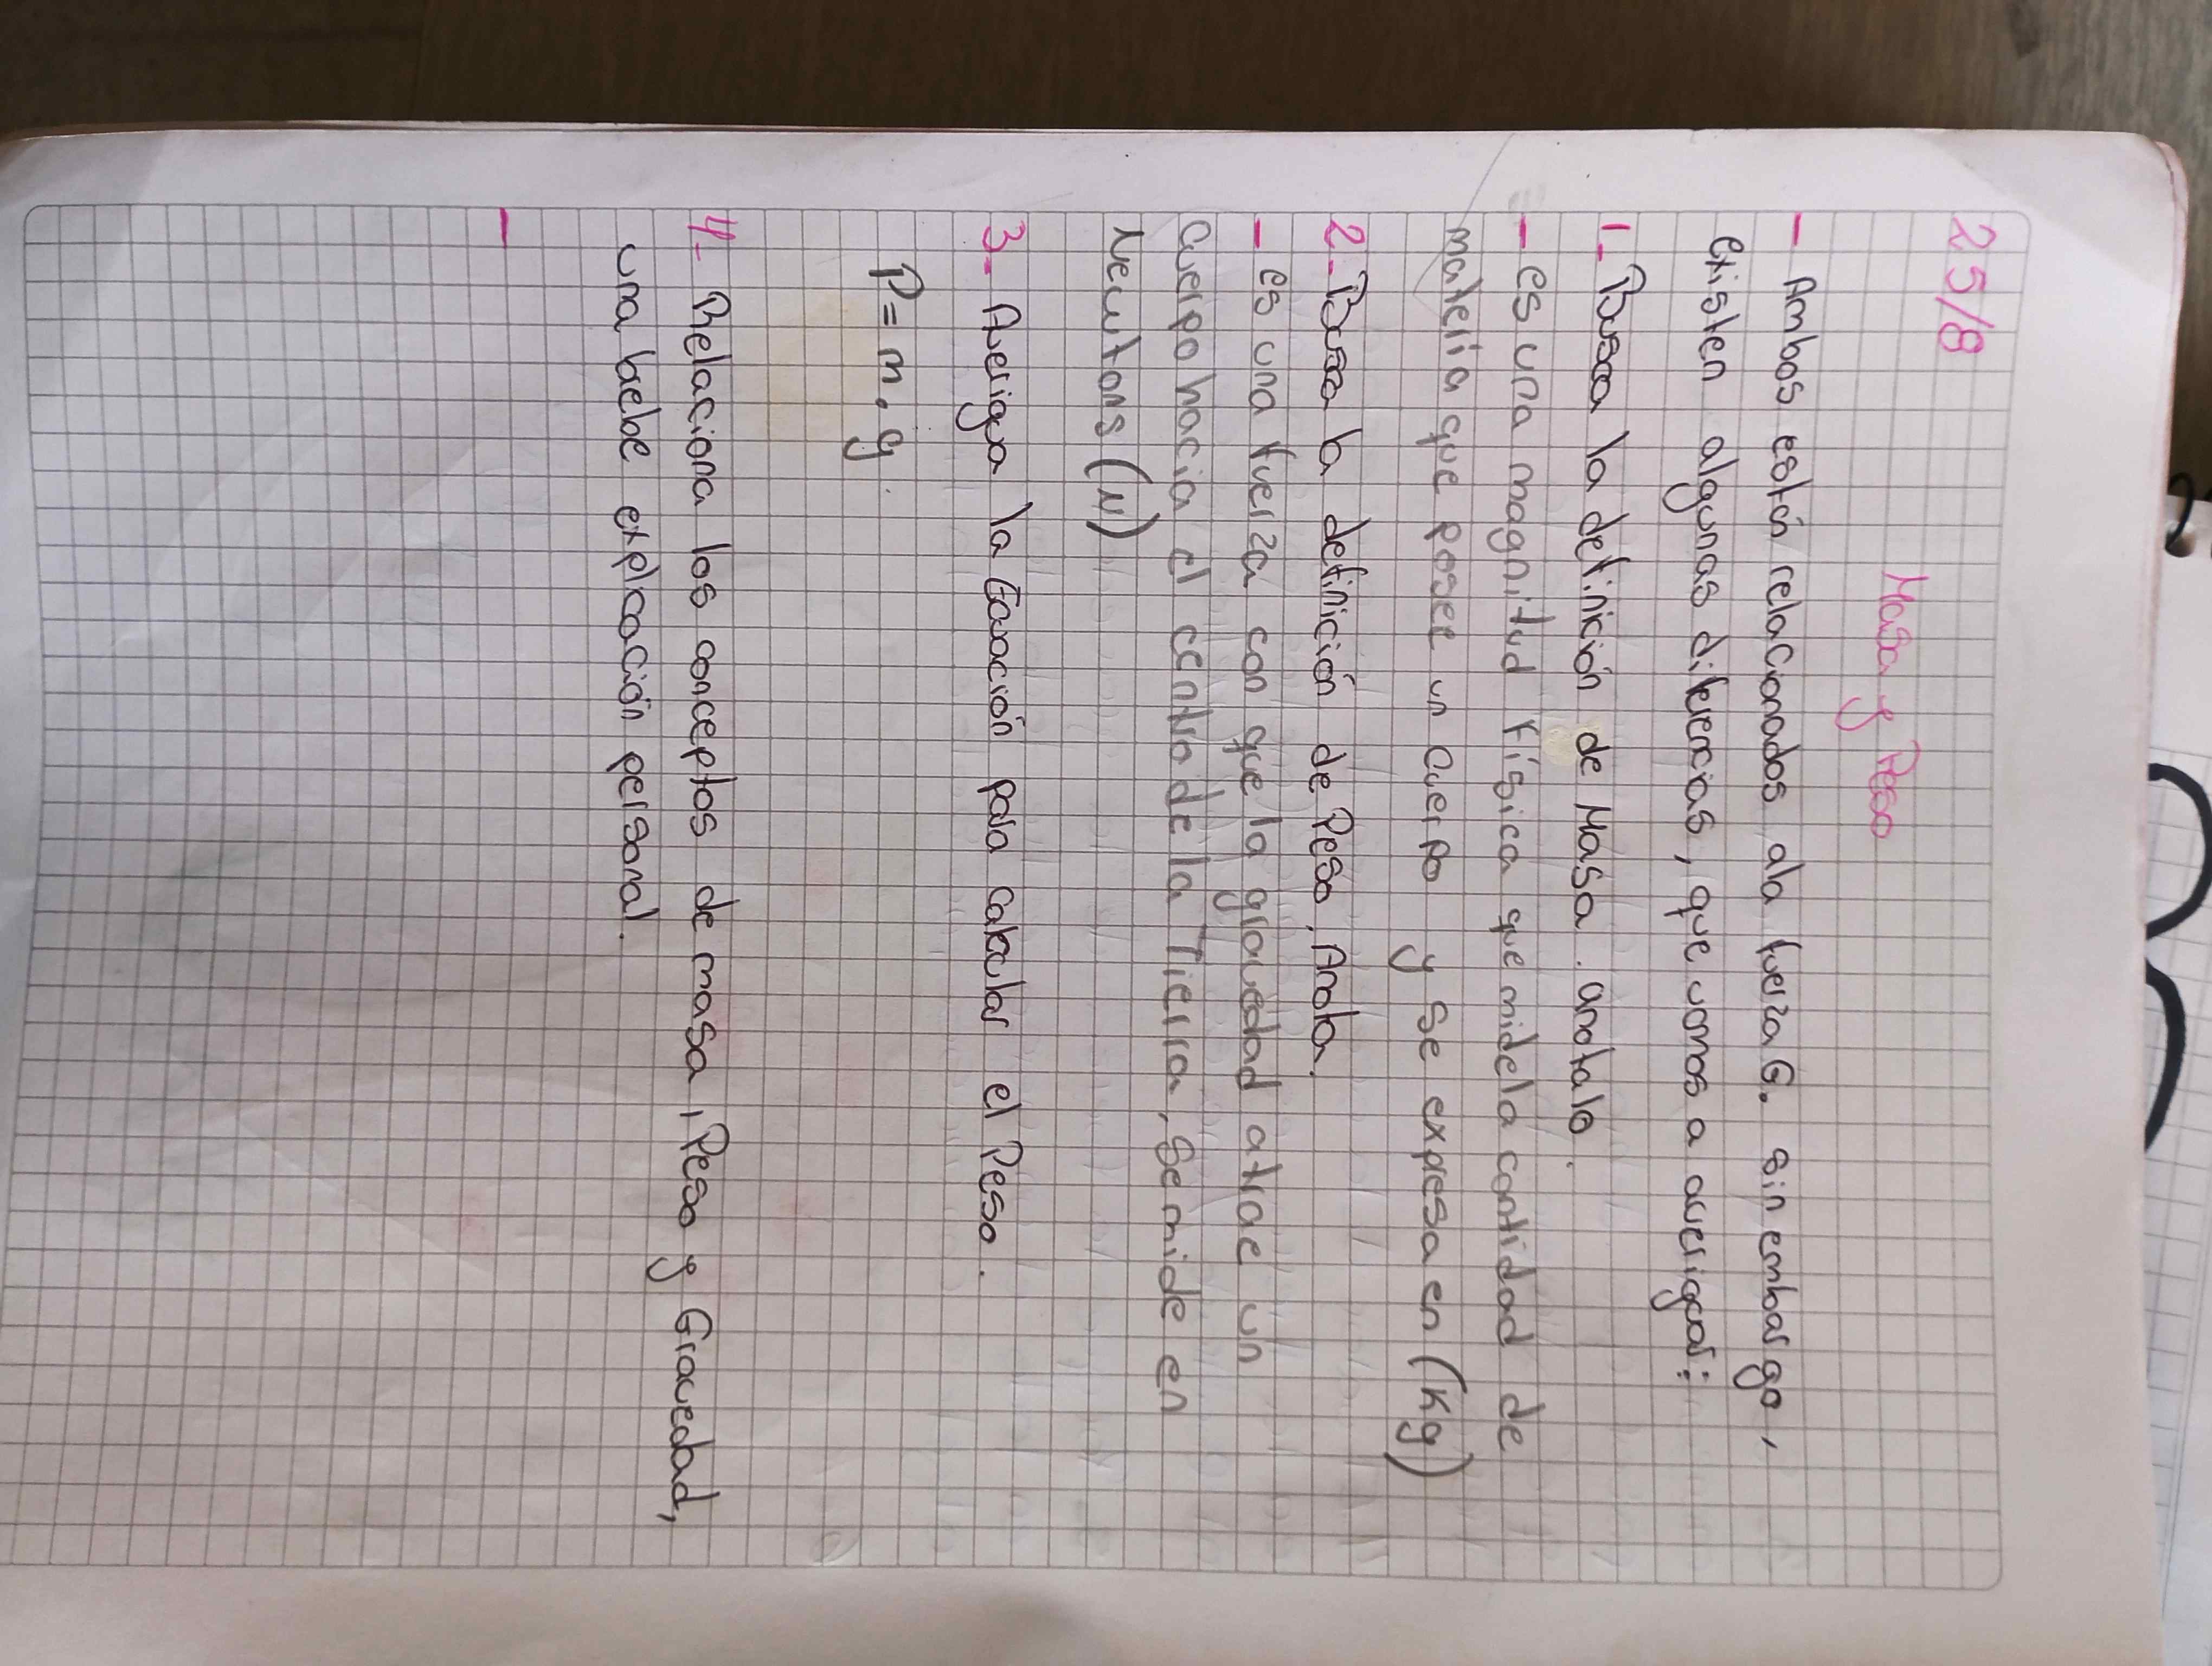 25/8
Masa y Peso
- Ambos están relacionados ala fuerza G. sin embargo,
existen algunas diferencias, que vamos a averiguar:
1- Busca la definición de Masa. anotalo.
- es una magnitud física que mide la cantidad de
materia que posee un cuerpo y se expresa en (Kg)
2- Busca la definición de Peso, Anota.
- es una fuerza con que la gravedad atrae un
cuerpo hacia el centro de la Tierra, se mide en
Newtons (N)
3- Averigua la Ecuación para calcular el Peso.
P = m . g.
4- Relaciona los conceptos de masa, Peso y Gravedad,
una breve explicación personal.
-